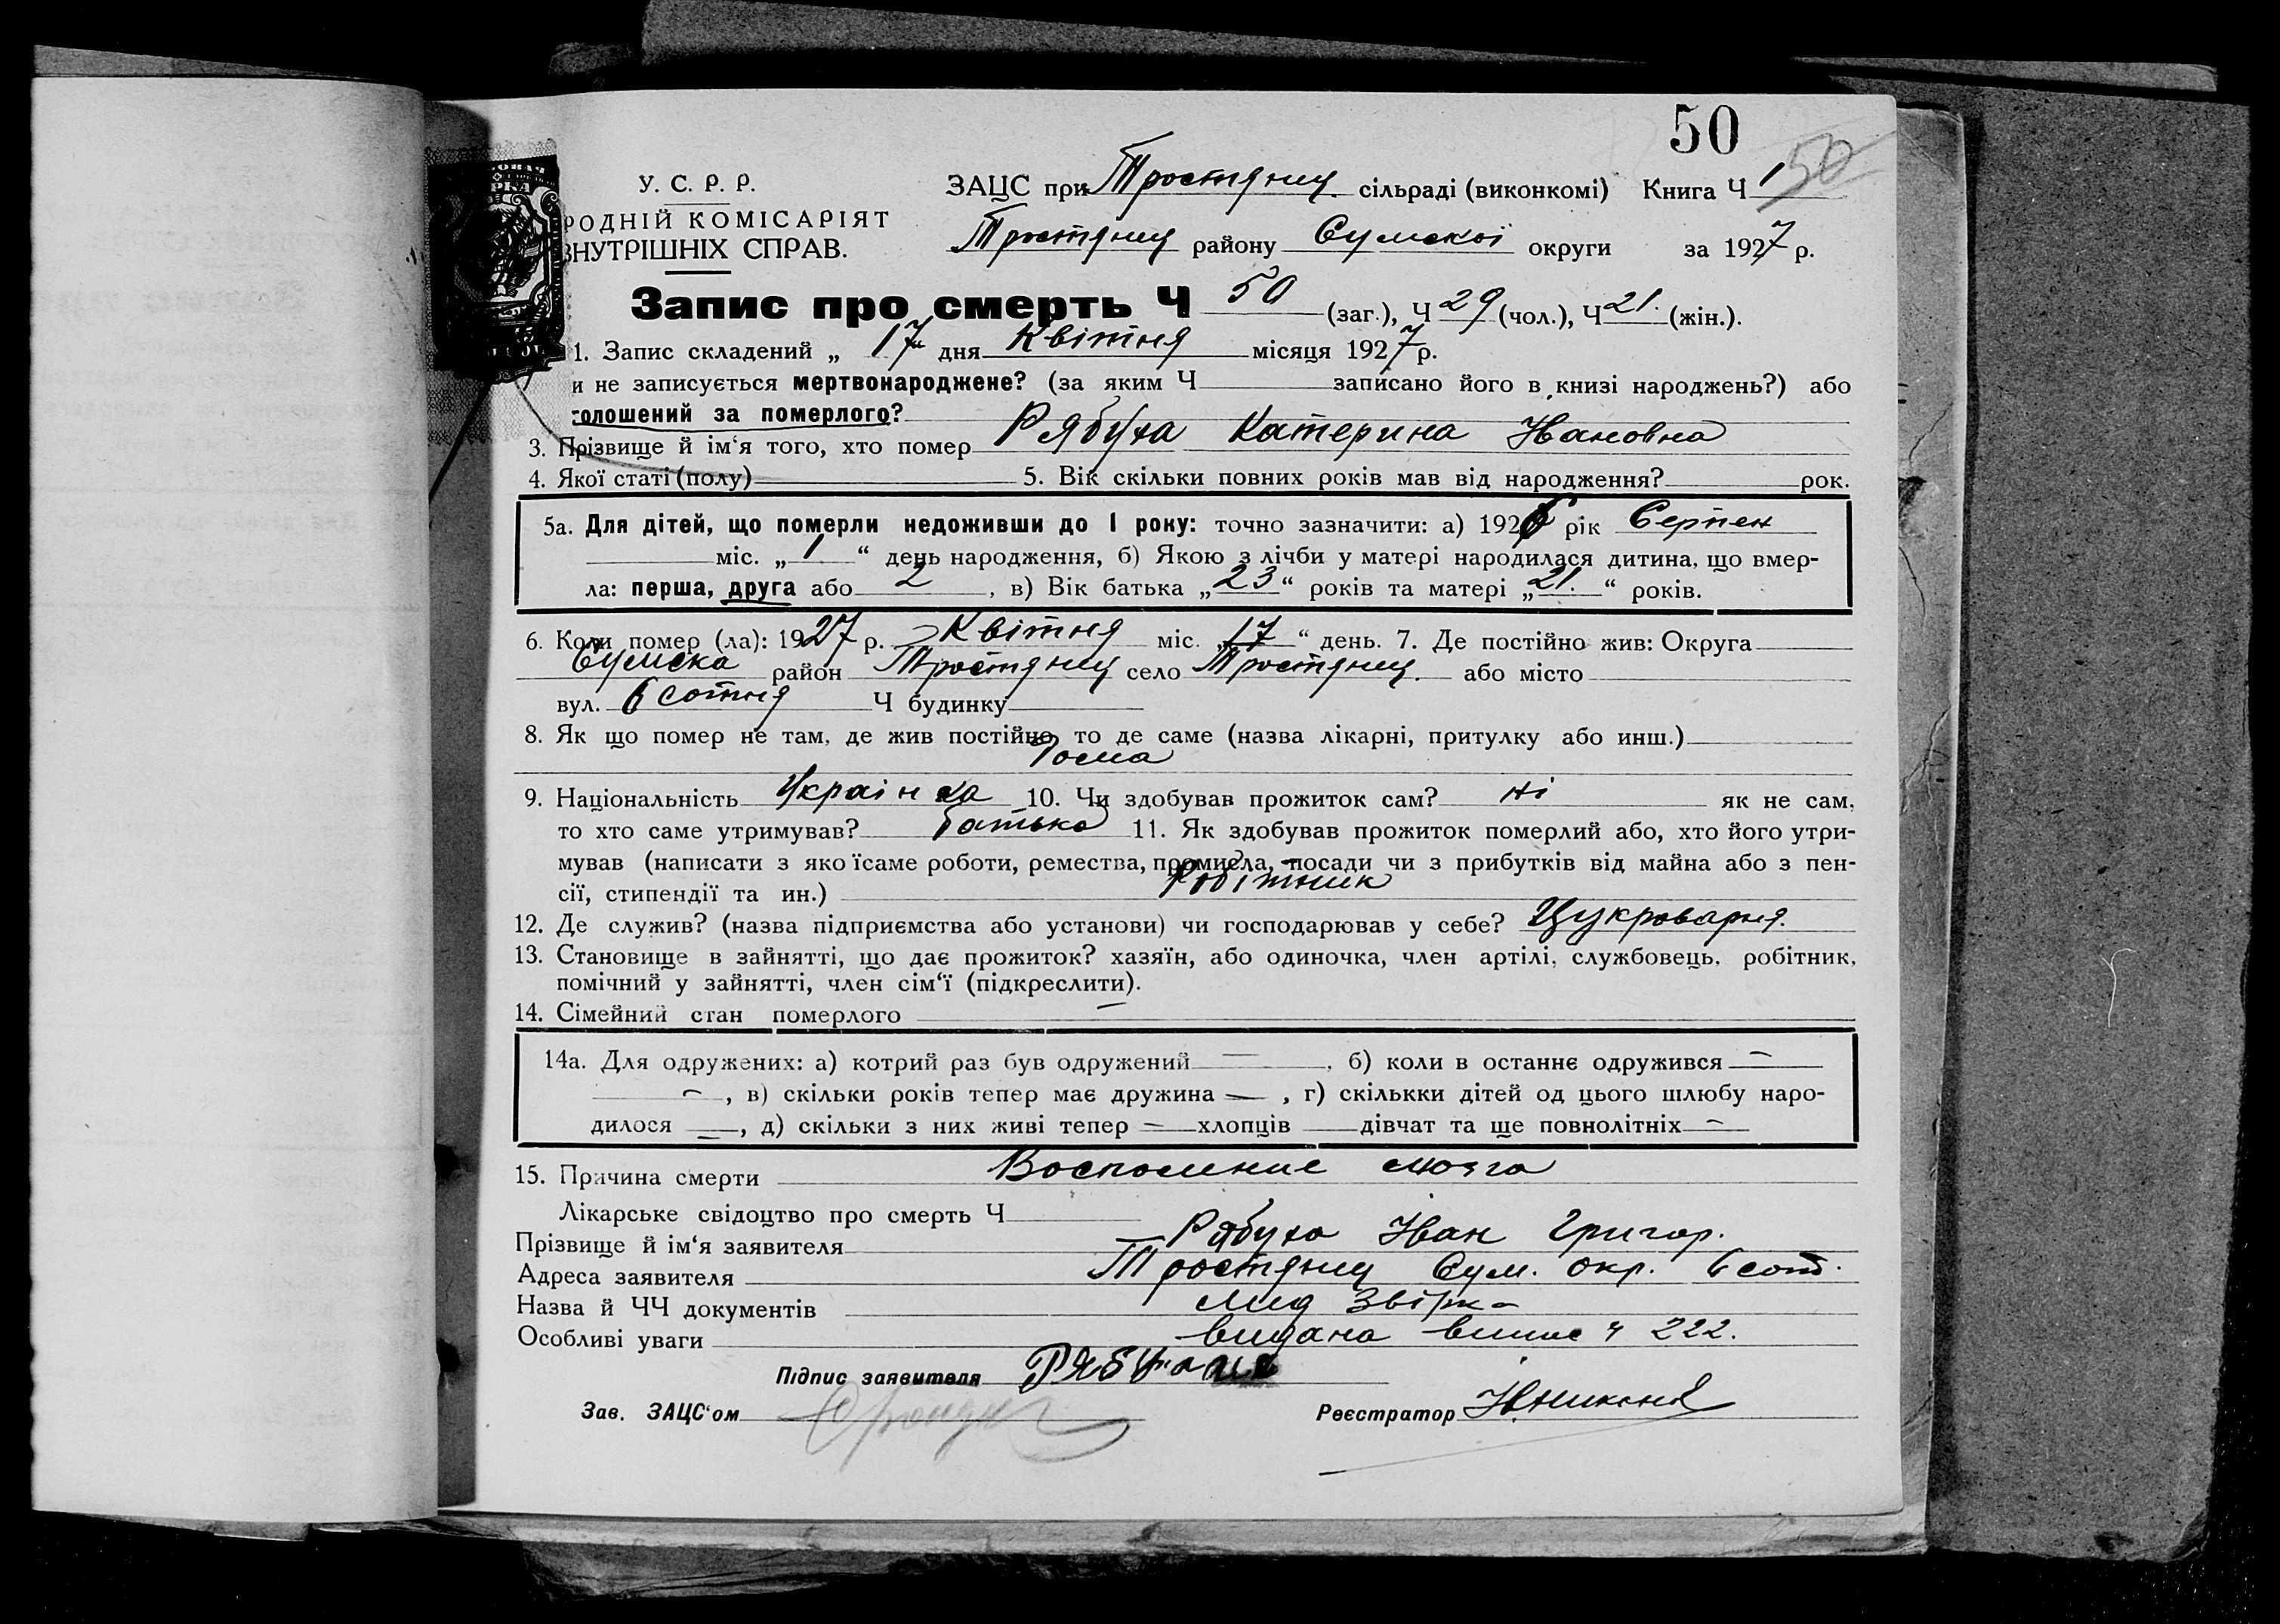 50
50
У. С. Р. Р.
ЗАЦС при Тростянец сільраді (виконкомі) Книга Ч 1
РОДНІЙ КОМІСАРІЯТ
ВНУТРІШНІХ СПРАВ.
Тростянец району Сумскої округи за 1927 р.
Запис про смерть Ч 50 (заг.), Ч 29 (чол.), Ч 21. (жін.).
1. Запис складений „ 17 дня Квітня місяця 1927 р.
и не записується мертвонароджене? (за яким Ч записано його в книзі народжень?) або
голошений за померлого?
3. Прізвище й ім‘я того, хто помер Рябуха Катерина Ивановна
4. Якої статі (полу) 5. Вік скільки повних років мав від народження? рок.
5а. Для дітей, що померли недоживши до 1 року: точно зазначити: а) 1926 рік Серпен
міс. „ 1 “ день народження, б) Якою з лічби у матері народилася дитина, що вмер-
ла: перша, друга або 2 , в) Вік батька „ 23 “ років та матері „ 21. “ років.
6. Коли помер (ла): 1927 р. Квітня міс. 17 “ день. 7. Де постійно жив: Округа
Сумска район Тростянец село Тростянец. або місто
вул. 6 сотня Ч будинку
8. Як що помер не там, де жив постійно, то де саме (назва лікарні, притулку або инш.)
Дома
9. Національність Українка 10. Чи здобував прожиток сам? ні як не сам,
то хто саме утримував? батько 11. Як здобував прожиток померлий або, хто його утри-
мував (написати з якоїсаме роботи, ремества, промисла, посади чи з прибутків від майна або з пен-
сії, стипендії та ин.) Робітник
12. Де служив? (назва підприємства або установи) чи господарював у себе? Цукроварня.
13. Становище в зайнятті, що дає прожиток? хазяїн, або одиночка, член артілі, службовець, робітник,
помічний у зайнятті, член сім‘ї (підкреслити).
14. Сімейний стан померлого —
14а. Для одружених: а) котрий раз був одружений — , б) коли в останнє одружився —
— , в) скільки років тепер має дружина — , г) скількки дітей од цього шлюбу наро-
дилося — , д) скільки з них живі тепер — хлопців дівчат та ще повнолітніх —
15. Причина смерти Восполение мозга
Лікарське свідоцтво про смерть Ч
Прізвище й ім‘я заявителя Рябуха Иван Григор.
Адреса заявителя Тростянец Сум. окр. 6 сот.
Назва й ЧЧ документів
Особливі уваги видана випис ч 222.
Підпис заявителя
Зав. ЗАЦС‘ом Реєстратор